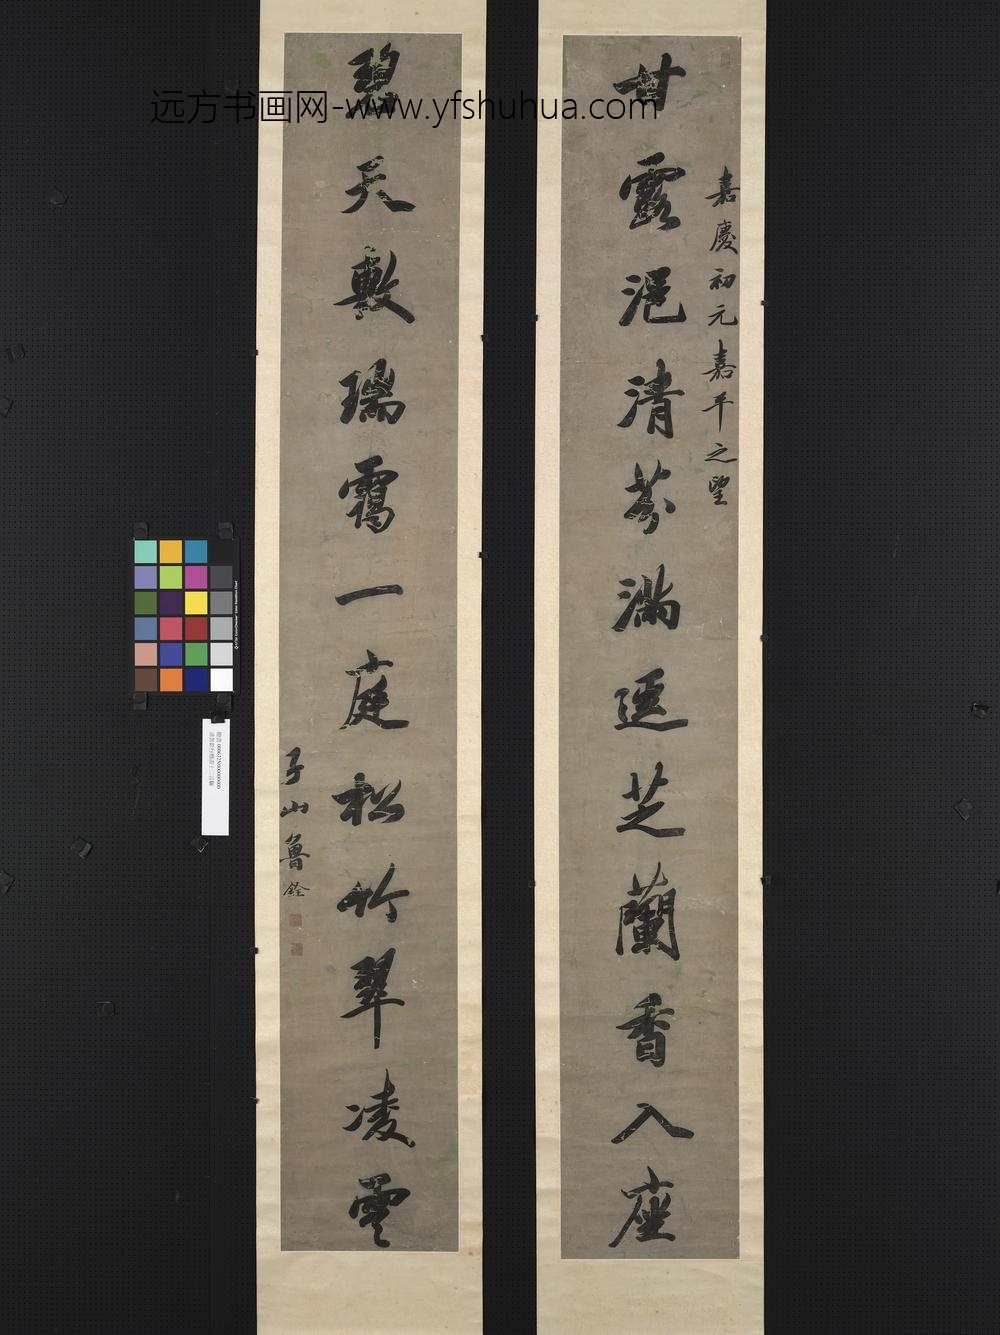 远方书画网-www.yfshuhua.com
嘉慶初元嘉平之望
甘露浥清芬滿逕芝蘭香入座
碧天敷瑞靄一庭松竹翠凌雲
子山魯銓